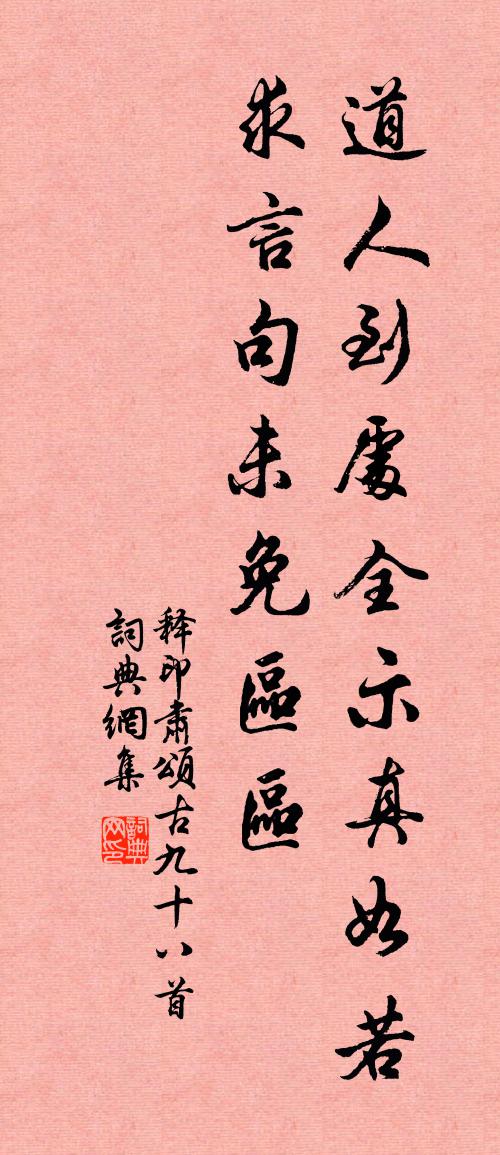 道人到處全示真如若
求言句未免區區
释印肅頌古九十八首
詞典網集
詞典網印